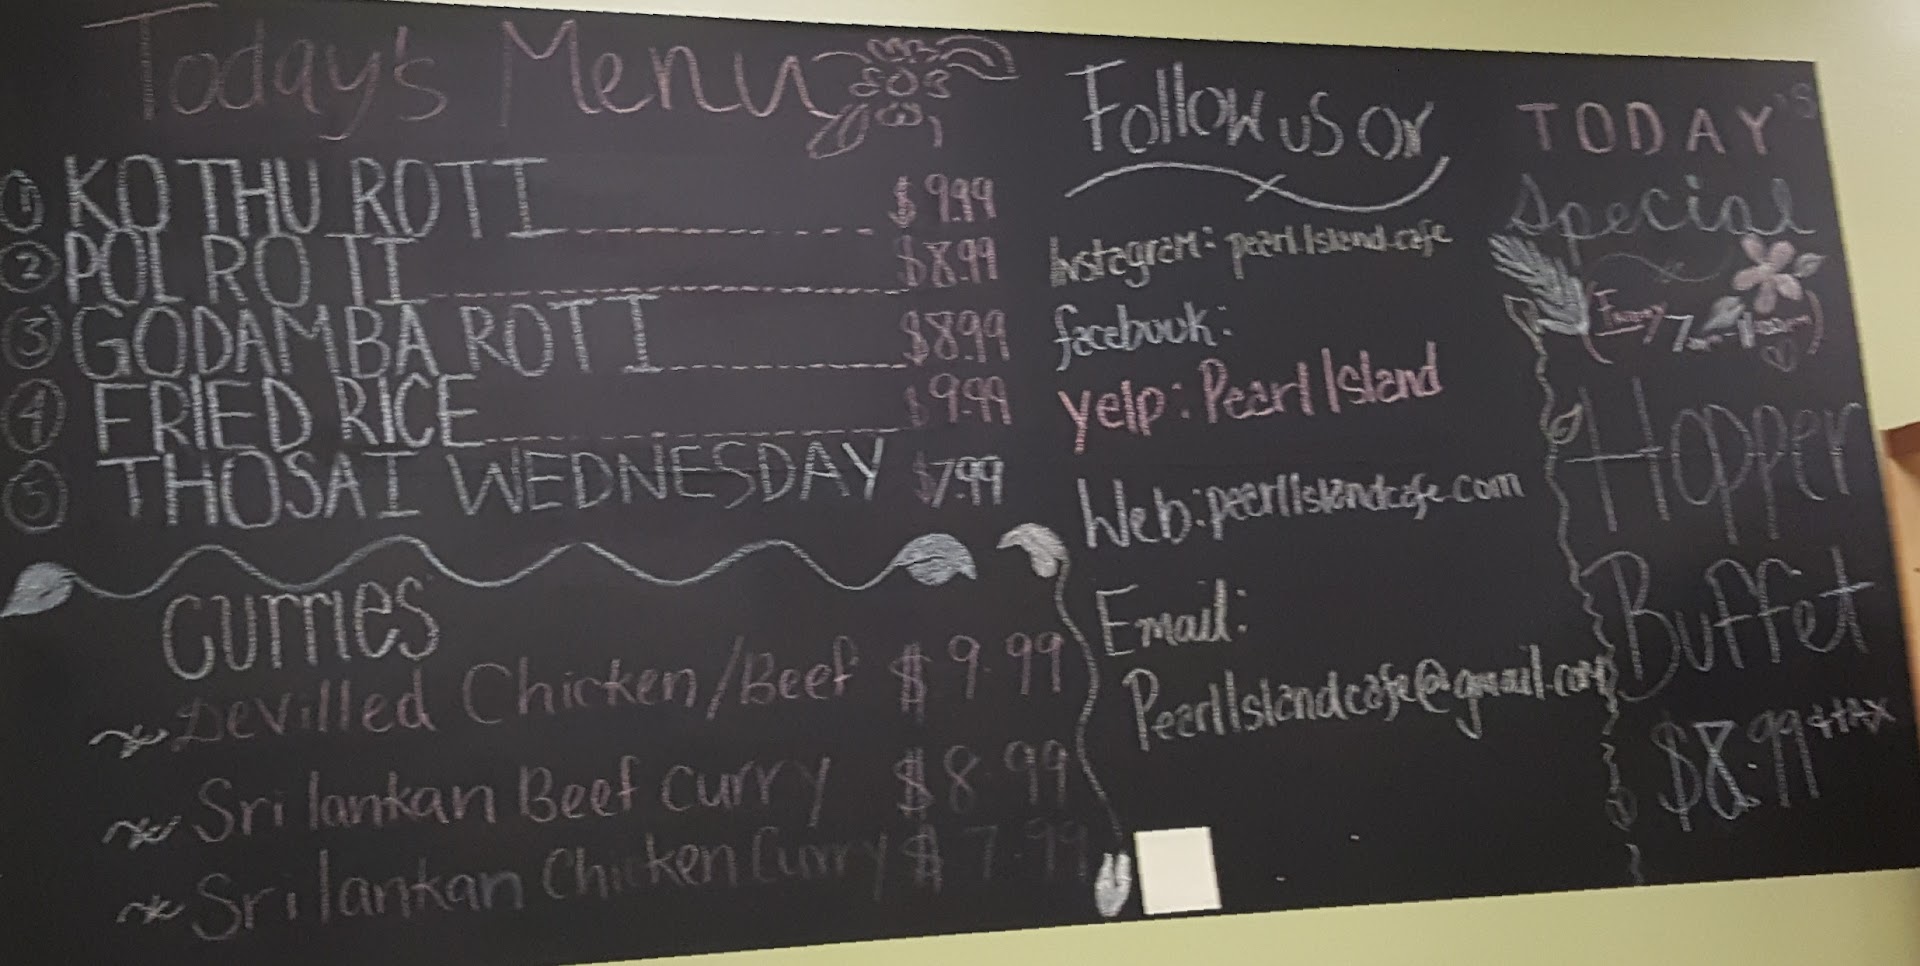 Today's Menu
1 KOTHU ROTI $9.99
2 POL ROTI $8.99
3 GODAMBA ROTI $8.99
4 FRIED RICE $9.99
5 THOSAI WEDNESDAY $7.99
Curries
Devilled Chicken/Beef $9.99
Sri lankan Beef curry $8.99
Sri lankan Chicken Curry $7.99
Follow us on
Instagram: pearl.Island.cafe
facebook:
Yelp: Pearl Island
Web: pearlIslandcafe.com
Email:
PearlIslandcafe@gmail.com
TODAY'S
Special
Hopper
Buffet
$8.99+tax